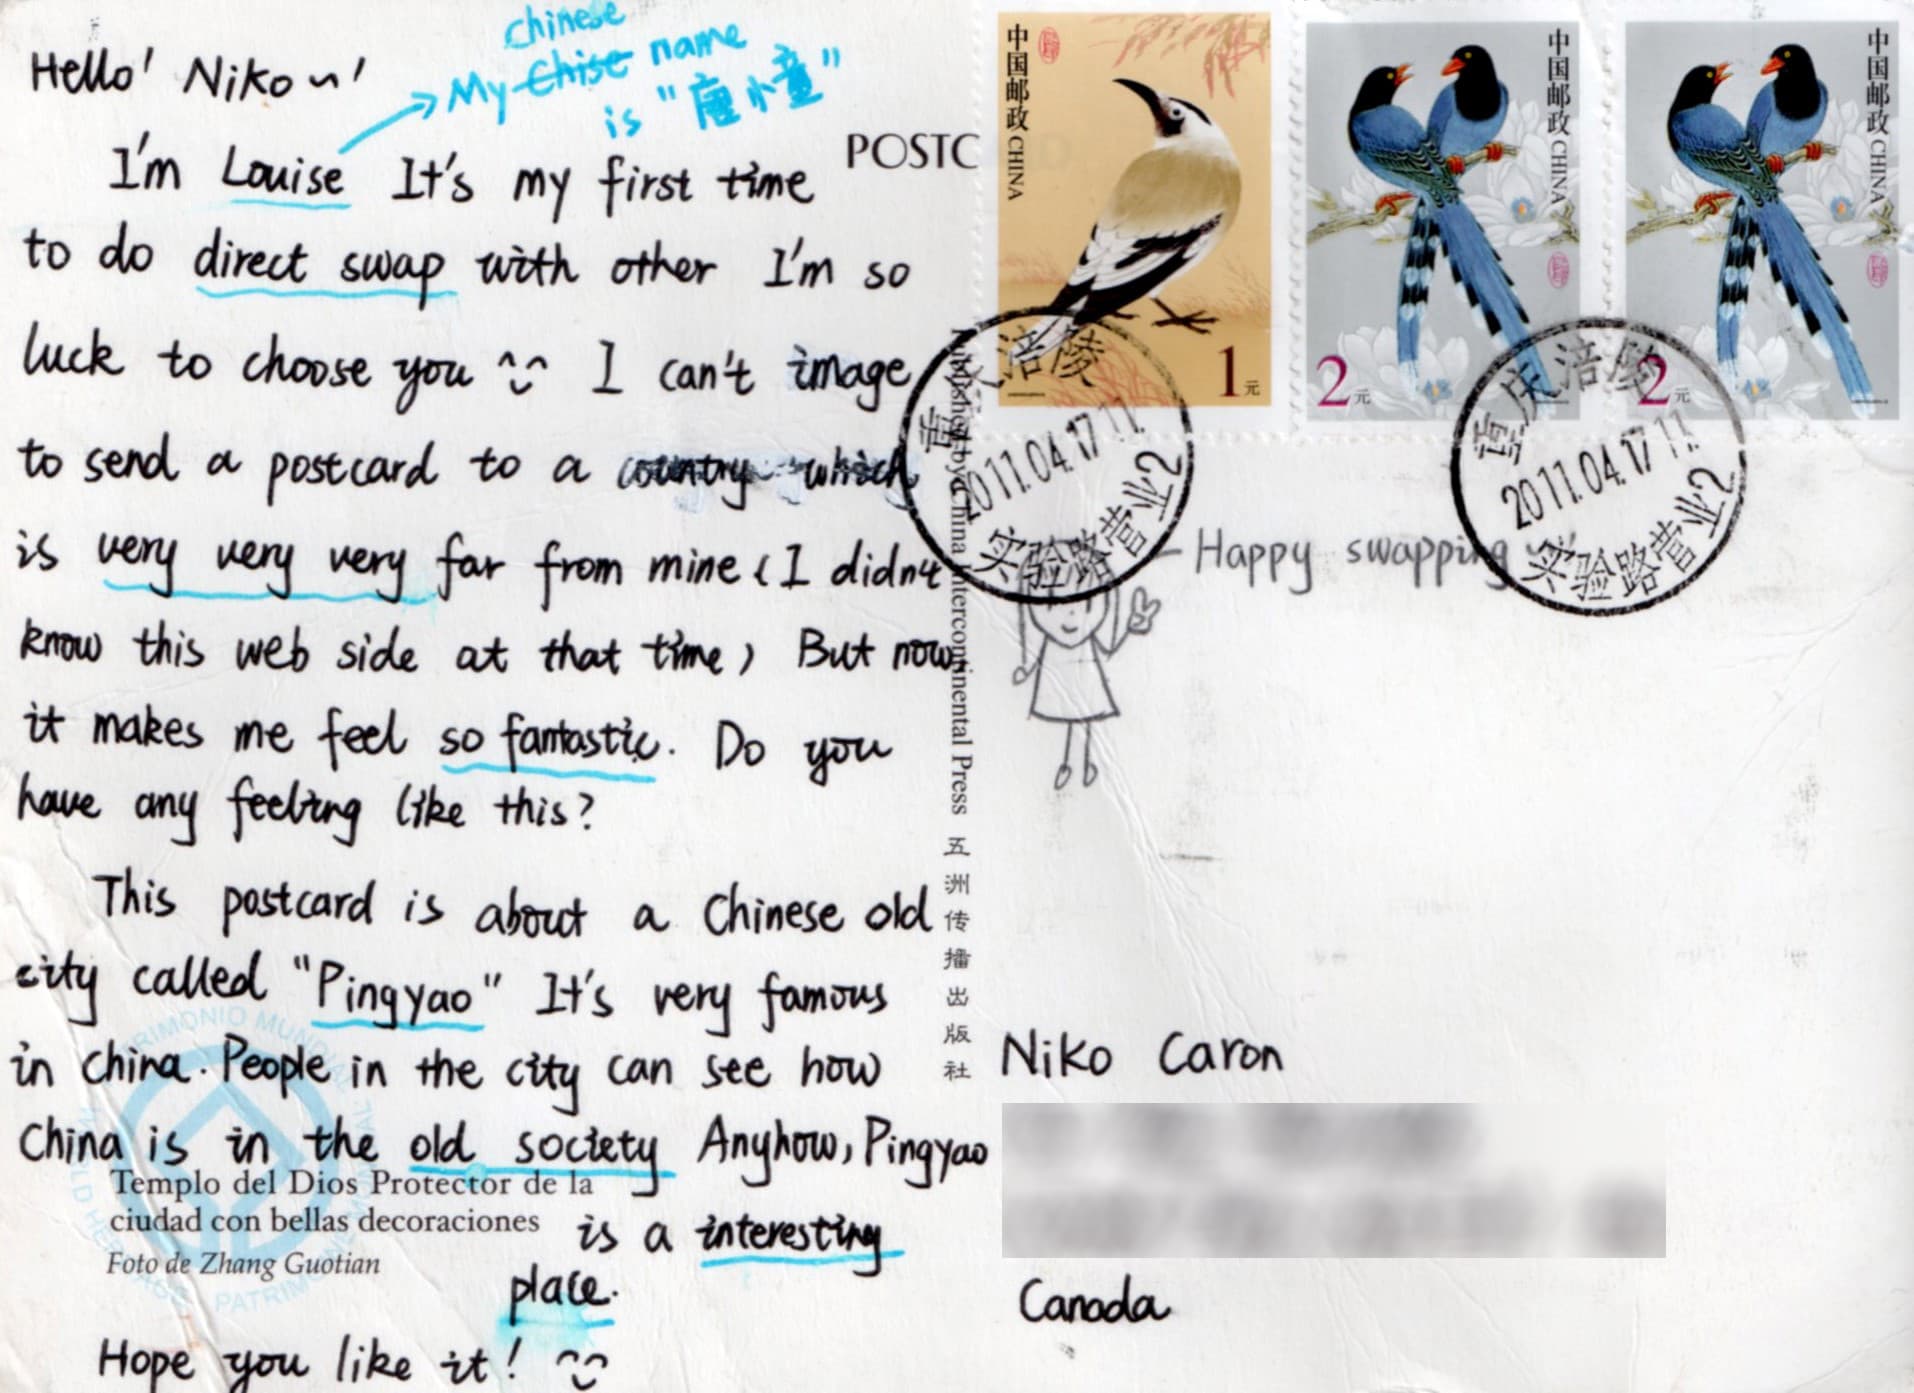 Hello! Niko~!
chinese
My Chise name
is "唐小童"
I'm Louise It's my first time
to do direct swap with other I'm so
luck to choose you ^‿^ I can't image
to send a postcard to a country which
is very very very far from mine (I didn't
know this web side at that time) But now
it makes me feel so fantastic. Do you
have any feeling like this?
This postcard is about a Chinese old
city called "Pingyao" It's very famous
in China. People in the city can see how
China is in the old society Anyhow, Pingyao
is a interesting
place.
Hope you like it!
Templo del Dios Protector de la
ciudad con bellas decoraciones
Foto de Zhang Guotian
PATRIMONIO MUNDIAL
WORLD HERITAGE
PATRIMOINE MONDIAL
POSTCARD
中国邮政 CHINA
1元
中国邮政 CHINA
2元
中国邮政 CHINA
2元
重庆涪陵
2011.04.17 11
实验路营业2
重庆涪陵
2011.04.17 11
实验路营业2
Published by China Intercontinental Press 五洲传播出版社
Happy swapping
Niko Caron
Canada